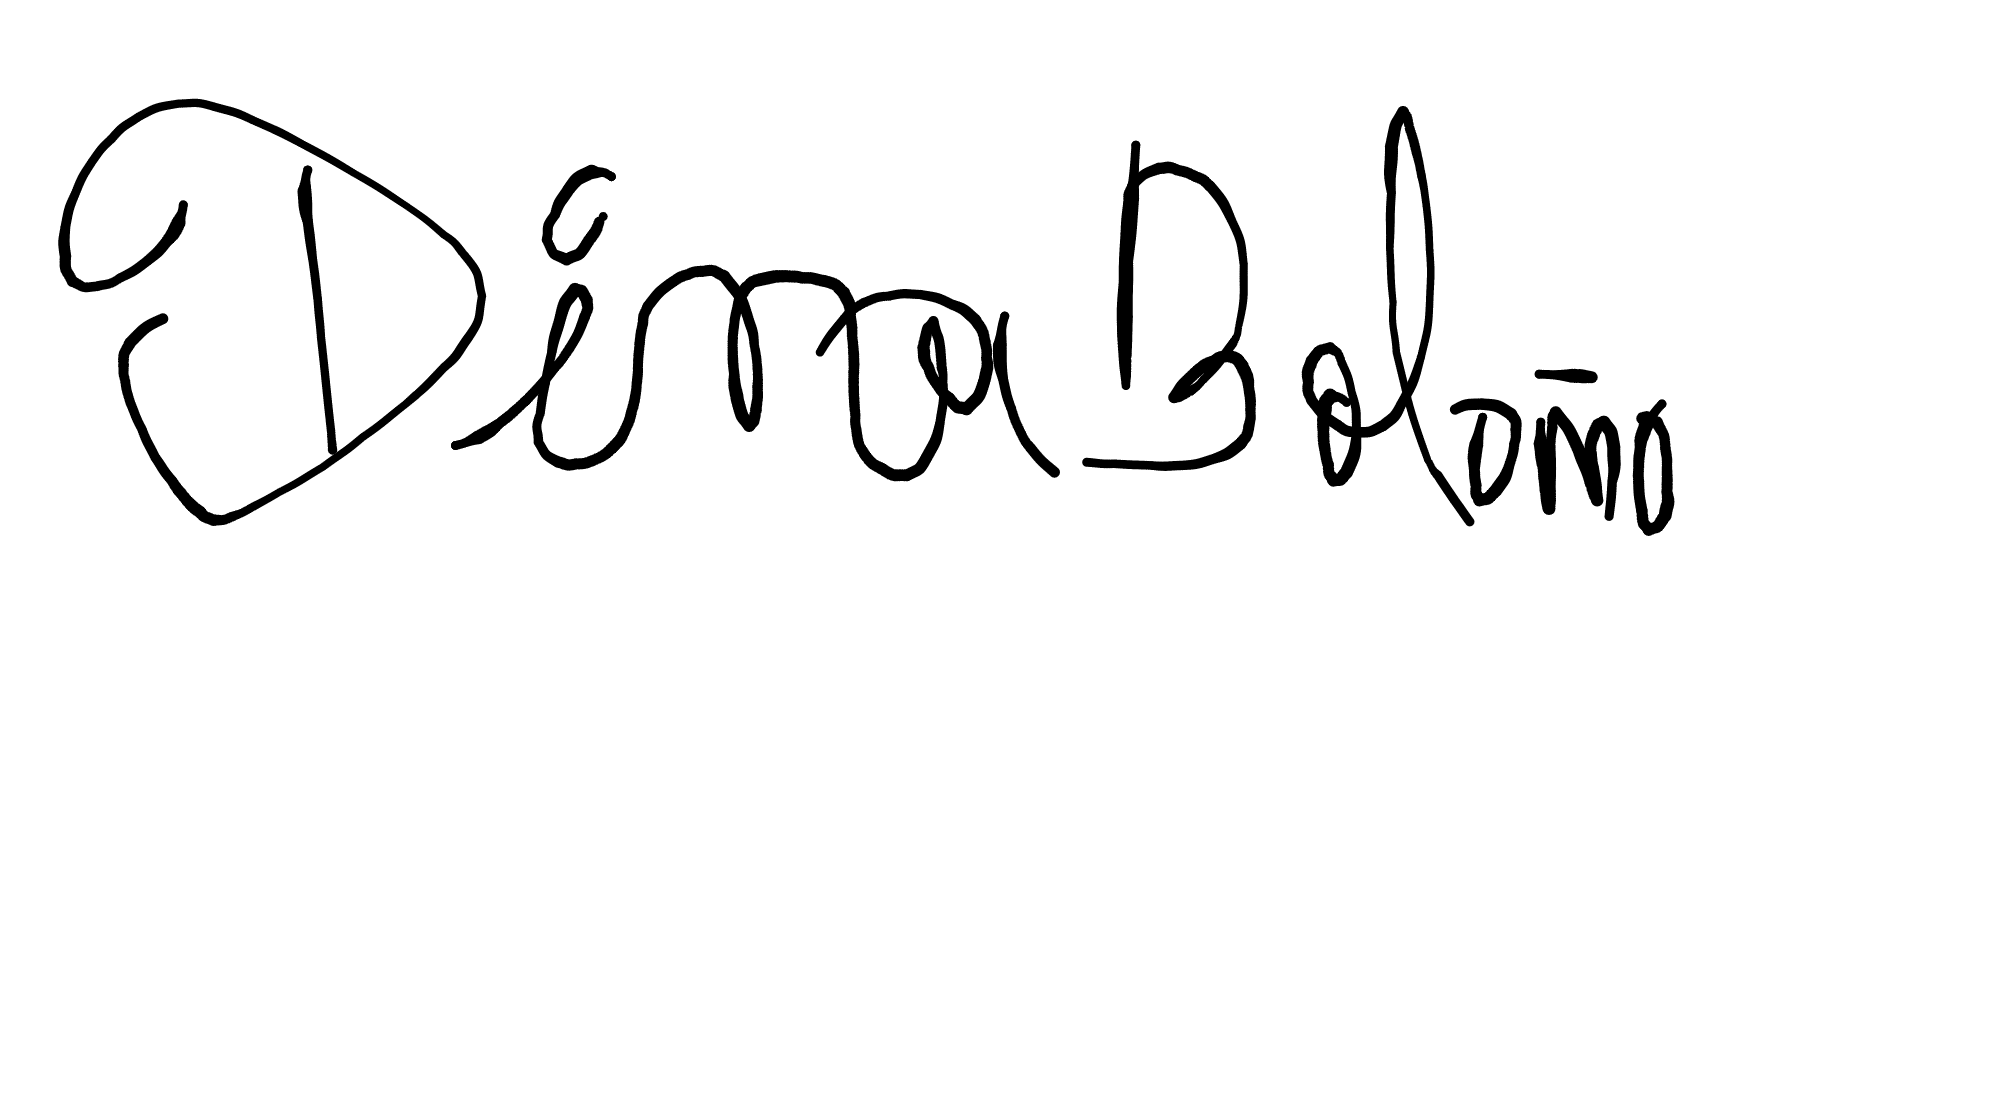 Dina Bolaño